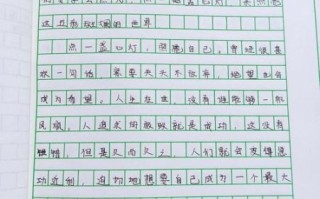 这五彩斑斓的世界
点一盏心灯，照亮自己。曾经很喜
欢一句话，只要夹夹不放弃，绝望也会
成为希望。人生在世，没有谁能够一帆
风顺，人追求的极致就是成功，这没有
错，但是久而久之，人们就会变得急
功近利，迫切地想要自己成为一个最大